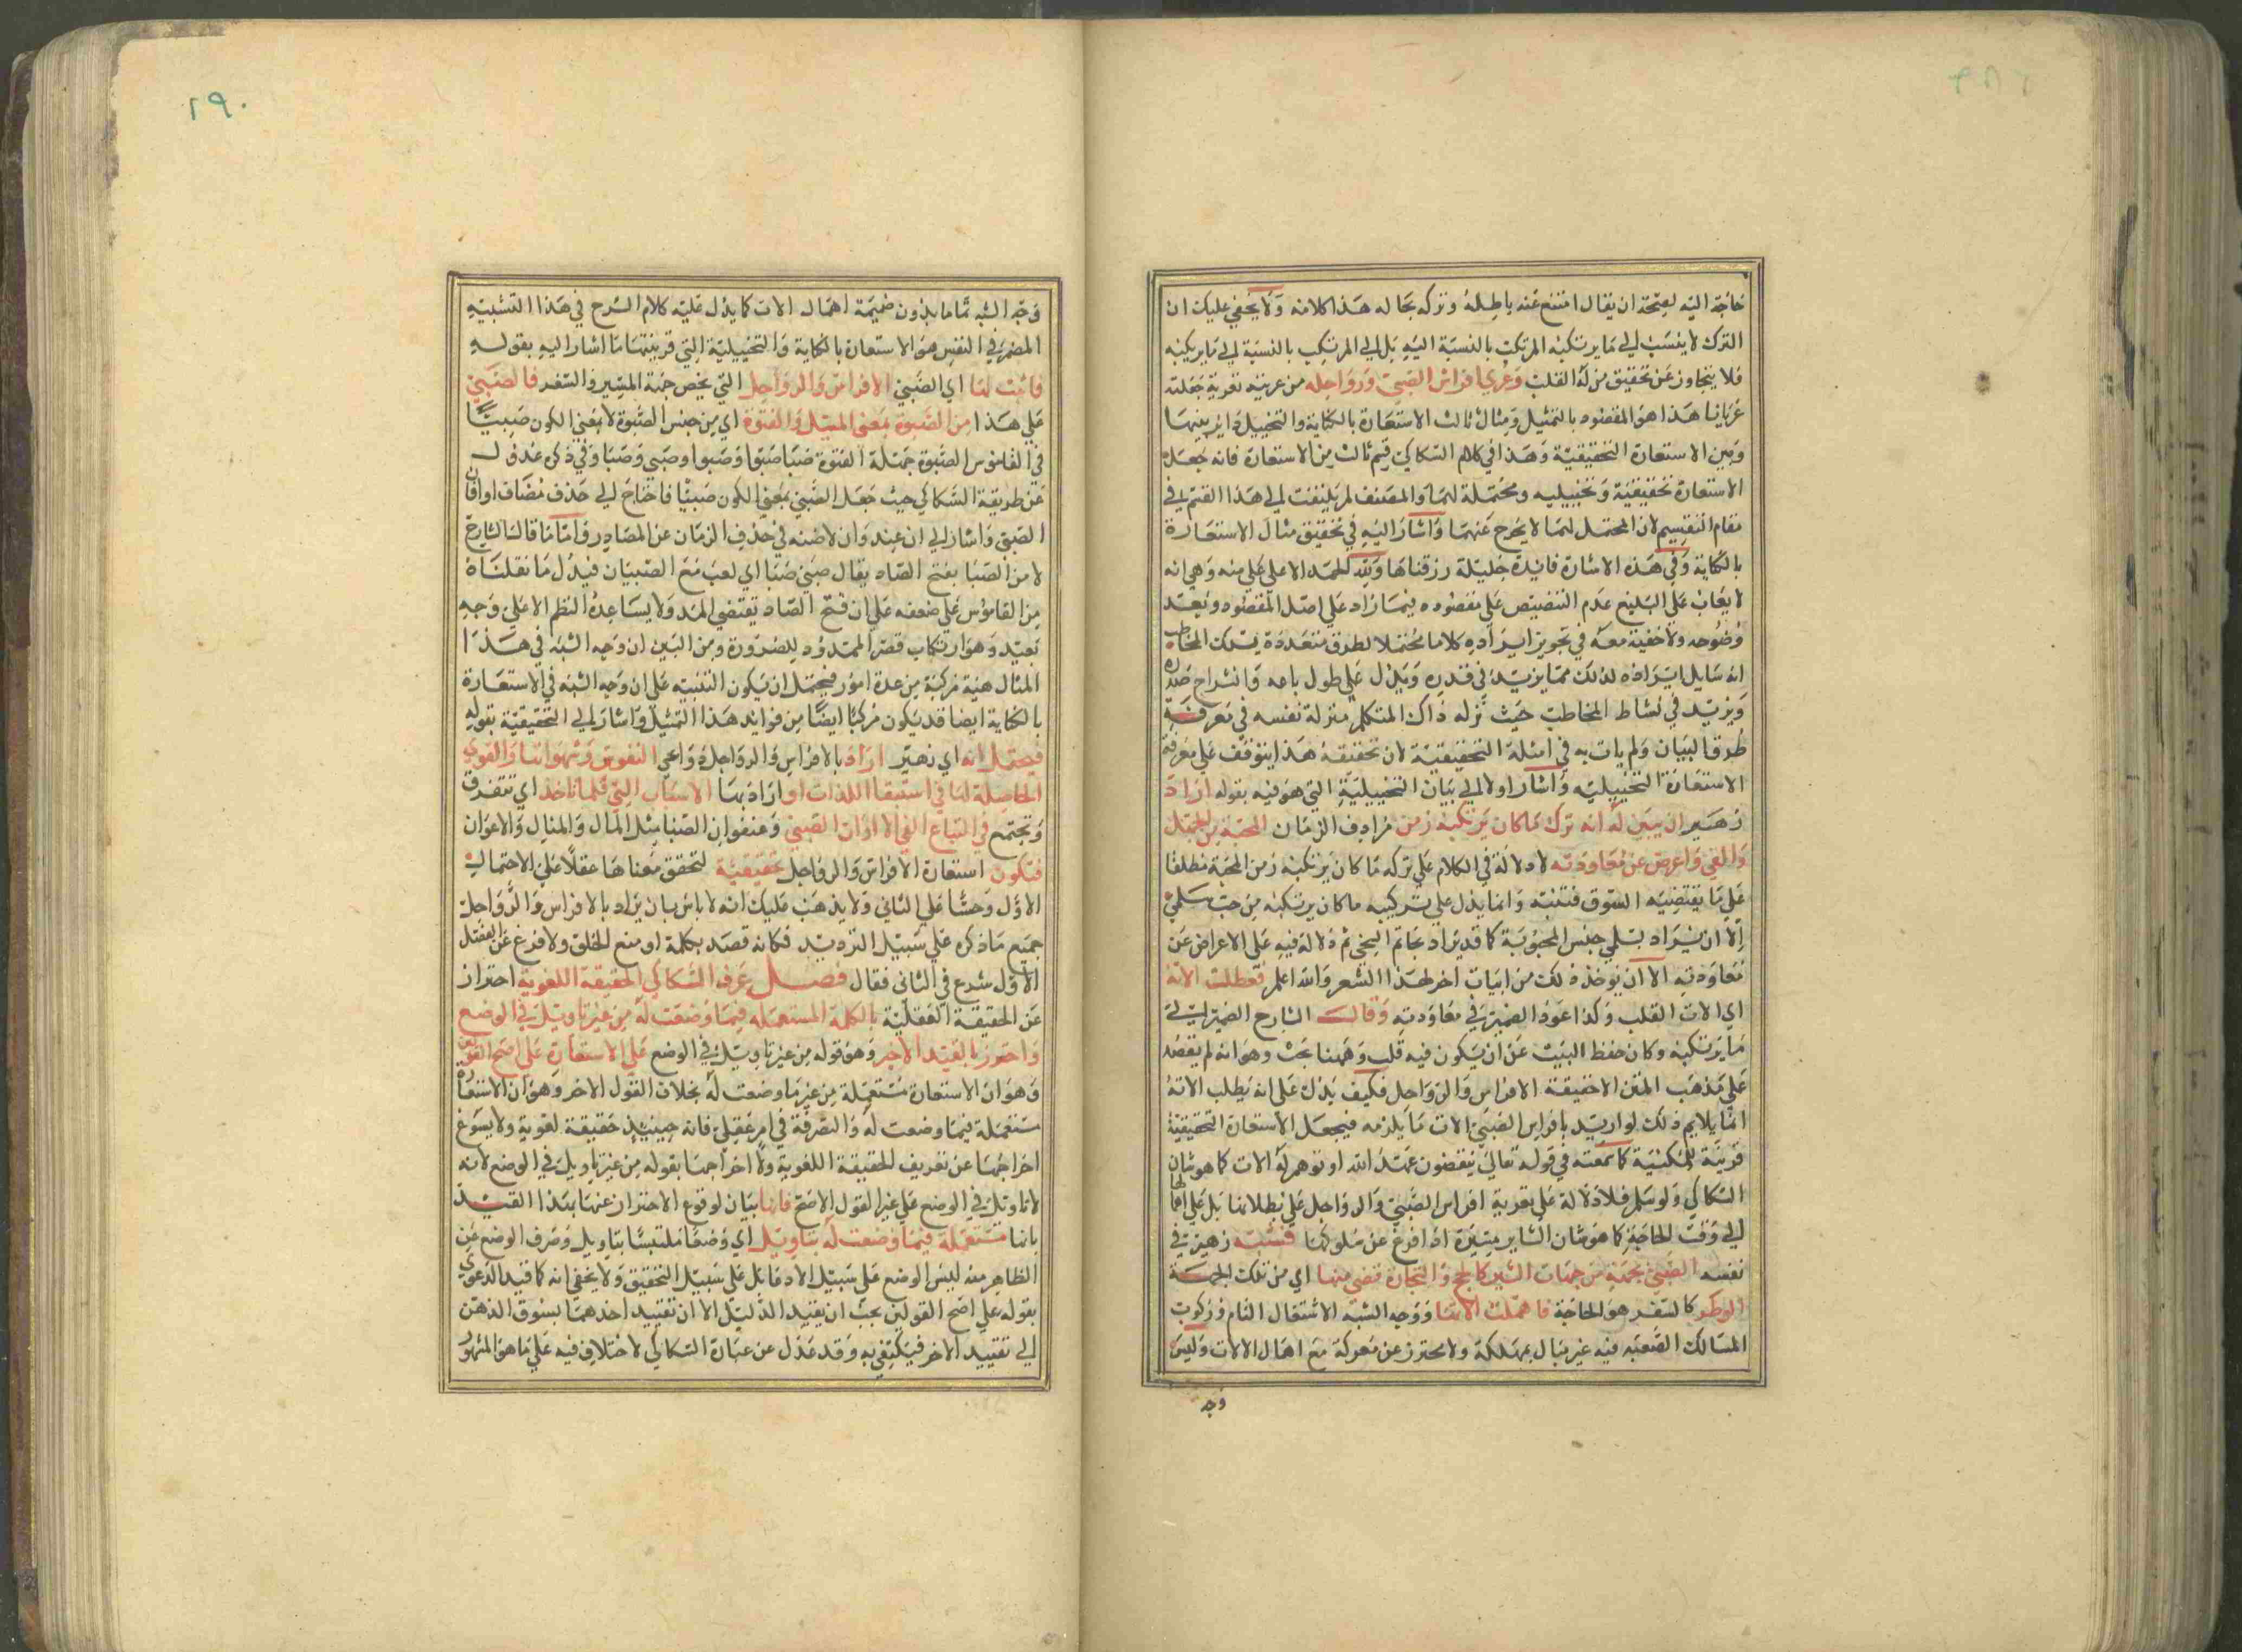 حاجة اليه لصحة ان يقال امتنع عنه باطله وتركه بحاله هذا كلامه ولا يخفى عليك ان
الترك لا ينسب الى ما يرتكبه المرتكب بالنسبة اليه بل الى المرتكب بالنسبة الى ما يرتكبه
فلا يتجاوز عن تحقيق منزلة القلب وعرى افراس الصبى ورواحله من عريته تعرية جعلته
عريانا هذا هو المقصود بالتمثيل ومثال ثالث الاستعارة بالكناية والتخييل دائر بينها
وبين الاستعارة التحقيقية وهذا في كلام السكاكي قسم ثالث من الاستعارة فانه جعل
الاستعارة تحقيقية وتخييليه ومحتملة لهما والمصنف لم يلتفت الى هذا القسم في
مقام التقسيم لان المحتمل لهما لا يخرج عنهما واشار اليه في تحقيق مثال الاستعارة
بالكناية وفي هذه الاشارة فائدة جليلة رزقناها ولله الحمد الاعلى على منه وهي انه
لا يعاب على البليغ عدم التنصيص على مقصوده فيما زاد على اصل المقصود وبعد
وضوحه ولا خفية معه في تجويز ايراده كلاما محتملا لطرق متعددة يسلك المخاطب
انه شايل ايراده لذلك مما يزيد في قدره ويدل على طول باعه وانشراح صدره
ويزيد في نشاط المخاطب حيث نزله ذاك المتكلم منزلة نفسه في معرفة
طرق البيان ولم يات به في امثلة التحقيقية لان تحقيقه هذا يتوقف على معرفة
الاستعارة التخييليه واشار اولا الى بيان التخييلية التي هو فيه بقوله اراد
زهير ان يبين له انه ترك ما كان يرتكبه زمن مرادف الزمان المحبة من الجهل
والغي واعرض عن معاودته لا دلالة في الكلام على تركه ما كان يرتكبه زمن المحبة مطلقا
على ما يقتضيه السوق فتنبه وانما يدل على تركه ما كان يرتكبه من حب سلمى
الا ان يراد بسلمى جنس المحبوبة كما قد يراد بحاتم السخي ثم دلالة فيه على الاعراض عن
معاودته الا ان يوخذ ذلك من ابيات اخر لهذا الشعر والله اعلم فبطلت الاته
اي الات القلب وكذا عود الضمير في معاودته وقال الشارح الضمير الى
ما يرتكبه وكان حفظ البيت عن ان يكون فيه قلب وههنا بحث وهو انه لم يقصد
على مذهب المتن الا حقيقة الافراس والرواحل فكيف يدل على انه يطلب الاته
انما يلايم ذلك لو اريد بافراس الصبى الات ما يلزمه فيجعل الاستعارة التحقيقية
قرينة للمكنية كما سمعته في قوله تعالى ينقضون عهد الله او توهم له الات كما هو شان
السكاكي ولو سلم فلا دلالة على تعرية افراس الصبى والرواحل على بطلانها بل على اهمالها
الى وقت الحاجة كما هو شان الساير ميتيرة اذا فرغ عن سلوكها فشبه زهير في
نفسه الصبى بجهة من جهات السير كالحج والتجارة قضى منها اي من تلك الجهة
الوطر كالسفر هو الحاجة فاهملت الاتها ووجه الشبه الاشتغال التام وركوب
المسالك الصعبه فيه غير مبال بمهلكة ولا محترز عن معركة مع اهمال الالات وليس
وجه
١٩٠
وجه الشبه تماما بدون ضميمة اهمال الات كما يدل عليه كلام الشرح في هذا التشبيه
المضمر في النفس هو الاستعارة بالكناية والتخييلية التي قرينتها ما اشار اليه بقوله
فاثبت لها اي الصبى الافراس والرواحل التي يخص جهة المسير والسفر فالصبى
على هذا من الصبوة بمعنى الميل والفتوة اي من جنس الصبوة لا بمعنى الكون صبيا
في القاموس الصبوة جهلة الفتوة صبا صبوا وصبوا وصبى وصبا وفي ذكره عدول
عن طريقة السكاكي حيث جعل الصبى بمعنى الكون صبيا فاحتاج الى حذف مضاف اوان
الصبى واشار الى ان عند وان لا ضنه في حذف الزمان عن المصادر واما ما قال الشارح
لا من الصبا بفتح الصاد يقال صبى صبا اي لعب مع الصبيان فيدل ما نقلناه
من القاموس على ضعفه على ان فتح الصاد تقتضي المد ولا يساعده النظم الا على وجه
بعيد وهو ارتكاب قصر الممدود للضرورة ومن البين ان وجه الشبه في هذا
المثال هيئة مركبة من عدة امور فيحتمل ان يكون التنبيه على ان وجه الشبه في الاستعارة
بالكناية ايضا قد يكون مركبا ايضا من فوائد هذا التمثيل واشار الى التحقيقية بقوله
فيحتمل انه اي زهير اراد بالافراس والرواحل دواعي النفوس وشهواتها والقوى
الحاصلة لها في استيفا اللذات او اراد بها الاسباب التي قلما تاخذ اي تتفرق
وتجتمع في اتباع الغي الا اوان الصبى وعنفوان الصبا مثل المال والمنال والاعوان
فتكون استعارة الافراس والرواحل تحقيقية لتحقق معناها عقلا على الاحتمال
الاول وحسا على الثاني ولا يذهب عليك انه لا باس بان يراد بالافراس والرواحل
جميع ما ذكره على سبيل الترديد فكانه قصد بكلمة او منع الخلق ولا فرغ عن الفصل
الاول شرع في الثاني فقال فصل عرف السكاكي الحقيقة اللغوية احتراز
عن الحقيقة العقلية بالكلمة المستعمله فيما وضعت له من غير تاويل في الوضع
واحترز بالقيد الاخير وهو قوله من غير تاويل في الوضع على الاستعارة على اصح القولين
وهو ان الاستعارة مستعملة من غير ما وضعت له بخلاف القول الاخر وهو ان الاستعارة
مستعملة فيما وضعت له والتصرفة في امر عقلى فانه حينئذ حقيقة لغوية ولا يسوغ
اخراجها عن تعريف الحقيقة اللغوية ولا اخراجها بقوله من غير تاويل في الوضع لانه
لا تاويل في الوضع على غير القول الاصح فانها بيان لوقوع الاحتراز عنها بهذا القيد
بانها مستعملة فيما وضعت له بتاويل اي وضعا ملتبسا بتاويل وصرف الوضع عن
الظاهر منه ليس الوضع على سبيل الادعا بل على سبيل التحقيق ولا يخفى انه كما قيد الدعوى
بقوله على اصح القولين يجب ان يقيد الدليل الا ان تقييد احدهما يسوق الذهن
الى تقييد الاخر فيكتفي به وقد عدل عن عبارة السكاكي لاختلاف فيه على ما هو المشهور